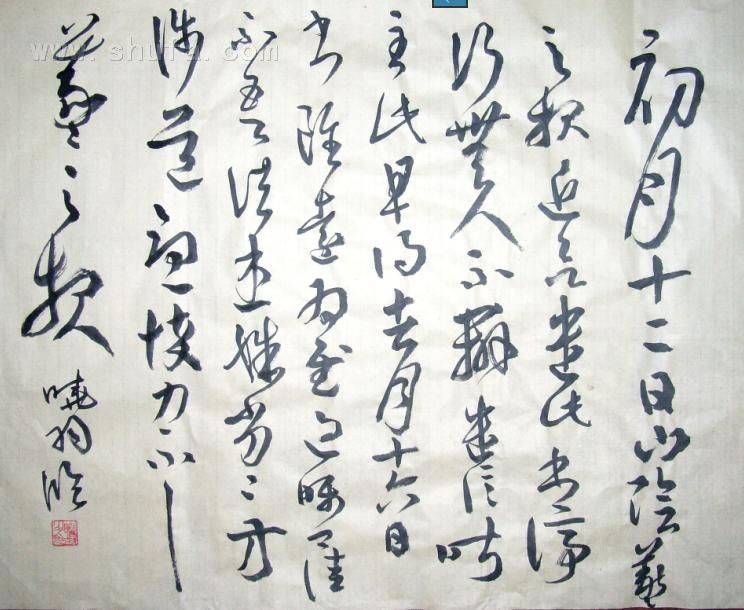 www.shufa.com
初月十二日山陰羲
之報近欲遣此書停
行無人不辦遣信昨
至此且得去月十六日
書雖遠為慰過囑卿佳
不吾諸患殊劣〻方
涉道憂悴力不具
羲之報
曉臨